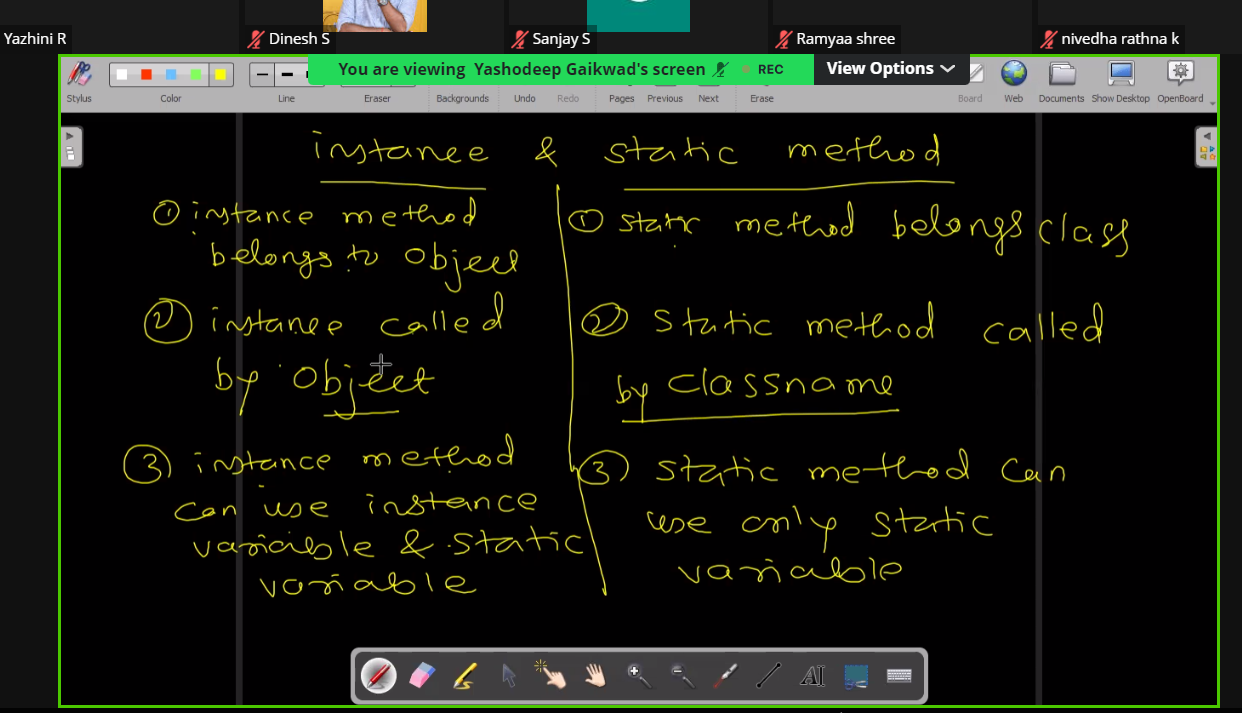 Yazhini R
Dinesh S
Sanjay S
Ramyaa shree
nivedha rathna k
You are viewing Yashodeep Gaikwad's screen
REC
View Options
Stylus
Color
Line
Eraser
Backgrounds
Undo
Redo
Pages
Previous
Next
Erase
Board
Web
Documents
Show Desktop
OpenBoard
instance & static method
① instance method
belongs to object
② instance called
by object
③ instance method
can use instance
variable & static
variable
① static method belongs class
② static method called
by classname
③ static method can
use only static
variable
AI